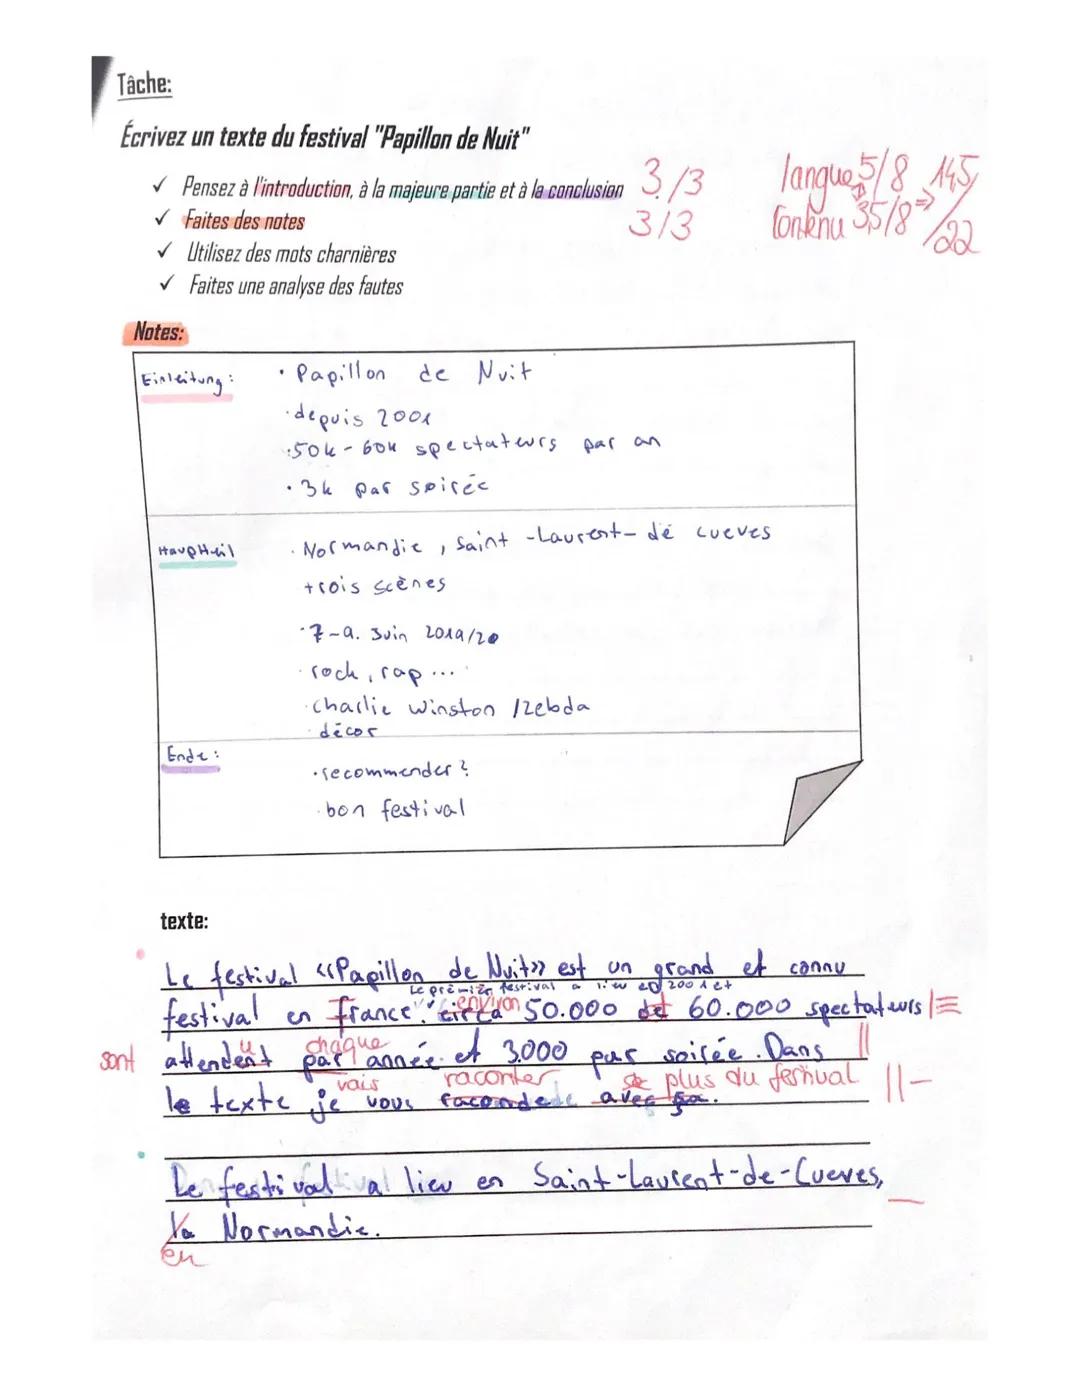 Tâche:
Écrivez un texte du festival "Papillon de Nuit"
✓ Pensez à l'introduction, à la majeure partie et à la conclusion 3/3
✓ Faites des notes 3/3
✓ Utilisez des mots charnières
✓ Faites une analyse des fautes
langue 5/8
Contenu 3,5/8 => 14,5/22
Notes:
Einleitung:
· Papillon de Nuit
· depuis 2001
· 50k - 60k spectateurs par an
· 3k par soirée
Hauptteil
· Normandie, Saint-Laurent-de cueves
trois scènes
· 7-9. Juin 2019/20
· rock, rap ...
· Charlie Winston / Zebda
· décor
Ende:
· recommender?
· bon festival
texte:
Le festival «Papillon de Nuit» est un grand et connu
Le premier festival a lieu en 2001 et
environ
festival en France. circa 50.000 60.000 spectateurs
chaque
sont attendent par année et 3.000 par soirée. Dans
vais raconter plus du festival
le texte je vous avec ça.
Le festival a lieu en Saint-Laurent-de-Cueves,
la Normandie.
en